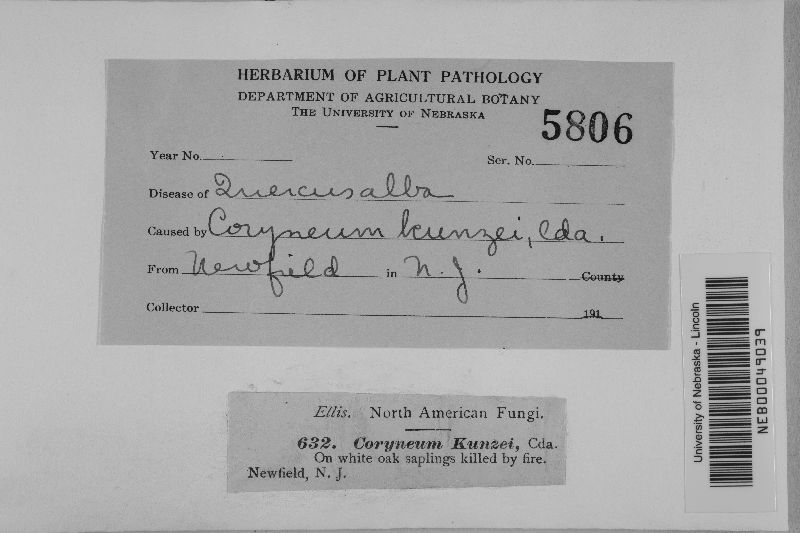 HERBARIUM OF PLANT PATHOLOGY
DEPARTMENT OF AGRICULTURAL BOTANY
THE UNIVERSITY OF NEBRASKA
5806
Year No. Ser. No.
Disease of Quercus alba
Caused by Coryneum kunzei, Cda.
From Newfield in N. J. County
Collector 191
Ellis. North American Fungi.
632. Coryneum Kunzei, Cda.
On white oak saplings killed by fire.
Newfield, N. J.
University of Nebraska - Lincoln
NEB00049039